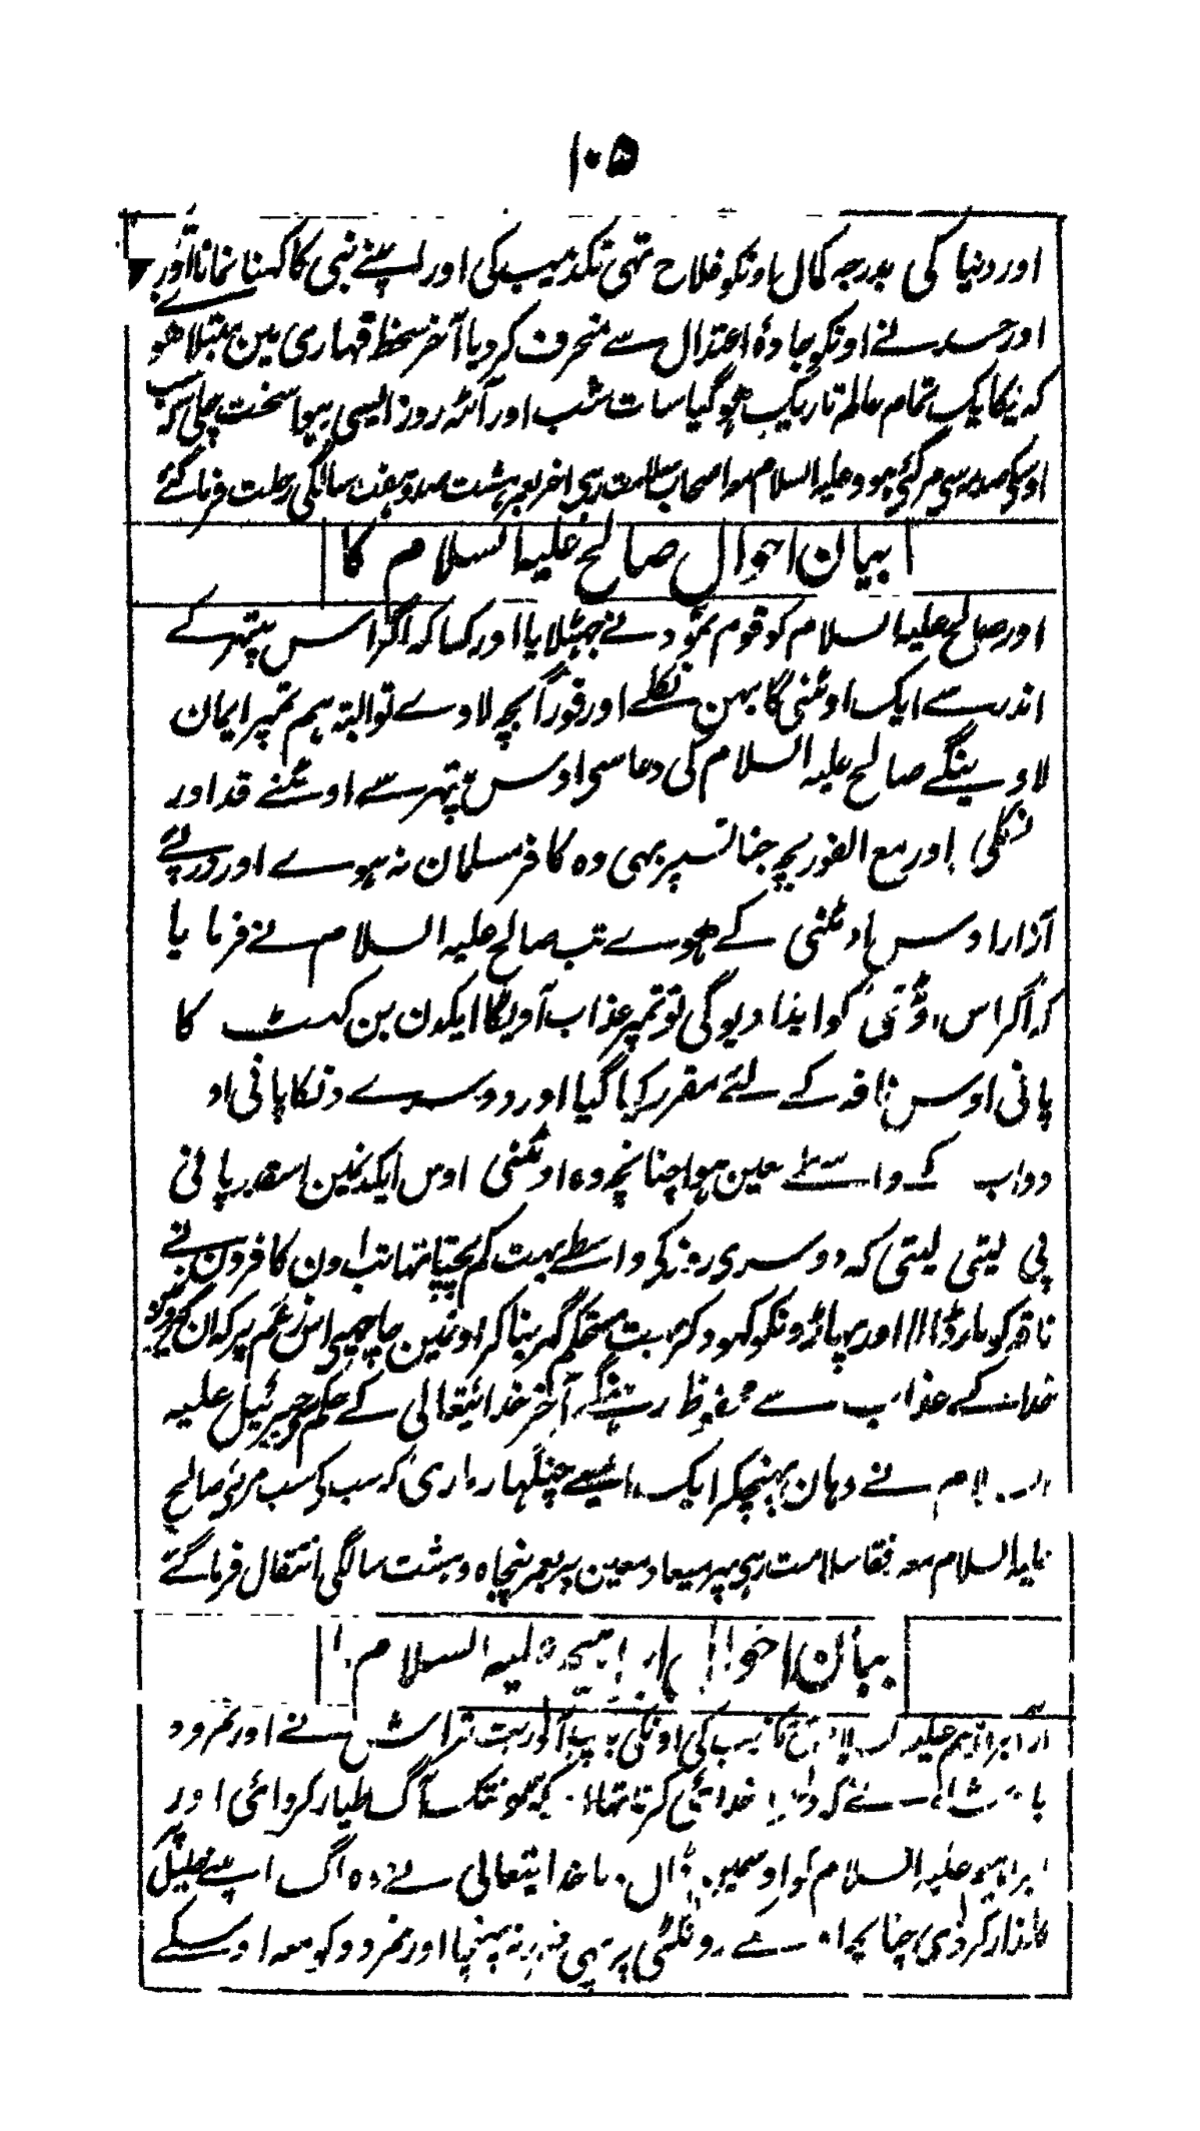 ۱۰۵
اور دنیا کی بدرجہ کمال اونکو فلاح تہی تکذیب کی اور اپنے نبی کا کہنا نمانا اور
اور حسد نے اونکو جادۂ اعتدال سے منحرف کر دیا آخر سخط قہاری مین مبتلا هو
کہ یکایک تمام عالم تاریک هو گیا سات شب اور آٹہ روز ایسی ہوا سخت چلی کہ سب
اوسکی صدمہ سی مر گئی ہود علیہ السلام مع اصحاب سلامت رہی اخر بعمر ہشت صد و هفت سالگی رحلت فرما گئے
بیان احوال صالح علیہ السلام کا
اور صالح علیہ السلام کو قوم ثمود نے جہٹلایا اور کہا کہ اگر اس پتہر کے
اندر سے ایک اوٹنی گابہن نکلے اور فوراً بچہ لاوے تو البتہ ہم تمپر ایمان
لاوینگے صالح علیہ السلام کی دعا سی اوس پتہر سے اوٹنے قداور
نکلی اور مع الفور بچہ جنا تسپر بہی وہ کافر مسلمان نہ ہوے اور درپے
آزار اوس اوٹنی کے هوے تب صالح علیہ السلام نے فرمایا
کہ اگر اس اوٹنی کو ایذا دیوگی تو تمپر عذاب آویگا ایکدن بن کہٹ کا
پانی اوس ناقہ کے لئے مقرر کیا گیا اور دوسرے دنکا پانی او
دواب کے واسطے معین ہوا چنانچہ وہ اوٹنی اوس ایکدنمین اسقدر پانی
پی لیتی لیتی کہ دوسری روز کی واسطے بہت کم بچتا تہا تب اون کافرون نے
ناقہ کو مار ڈالا اور پہاڑونکو کہود کر بہت مستحکم گہر بنا کر اونمین جا چہپی اس زعم پر کہ ان
خدا کے عذاب سے محفوظ رہینگے آخر خدائیتعالی کے حکم جبرئیل علیہ
السلام نے وهان پہنچکر ایک ایسے چنگہار ماری کہ سب کی سب مر گئی صالح
علیہ السلام معہ رفقا سلامت رہی پہر میعاد معین پر بعمر پنجاہ و ہشت سالگی انتقال فرما گئے
بیان احوال ابراہیم علیہ السلام کا
ابراہیم علیہ السلام کی تکذیب کی اونکی باپ آذر بت تراش نے اور نمرود
بادشاہ نے کہ خدائی کرتا تہا آگ طیار کروائی اور
ابراہیم علیہ السلام کو اوسمین ڈال دیا خدایتعالی نے وہ آگ اپنے خلیل پر
گلذار کر دی چنانچہ رونگٹی پر بہی ضرر نہ پہنچا اور نمرود کو معہ اوسکے